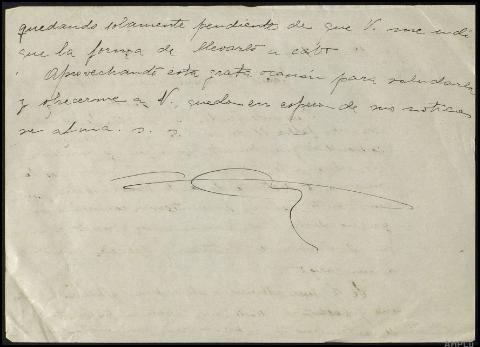 quedando solamente pendiente de que V. me indi
que la forma de llevarlo a cabo
Aprovechando esta grata ocasión para saludarle
y ofrecerme a V. quedo en espera de sus noticias
su atmo. s. s.